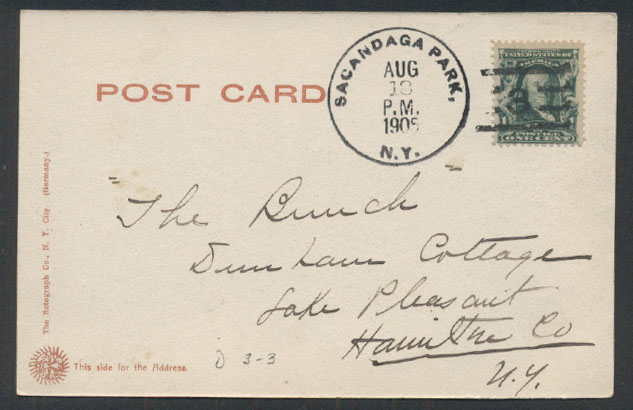 POST CARD
SACANDAGA PARK,
AUG
18
P.M.
N.Y.
UNITED STATES OF
AMERICA
POSTAGE
ONE CENT
"The Bunch"
Dunham Cottage
Lake Pleasant
Hamilton Co
N.Y.
D 3-3
The Rotograph Co., N. Y. City. (Germany.)
This side for the Address.